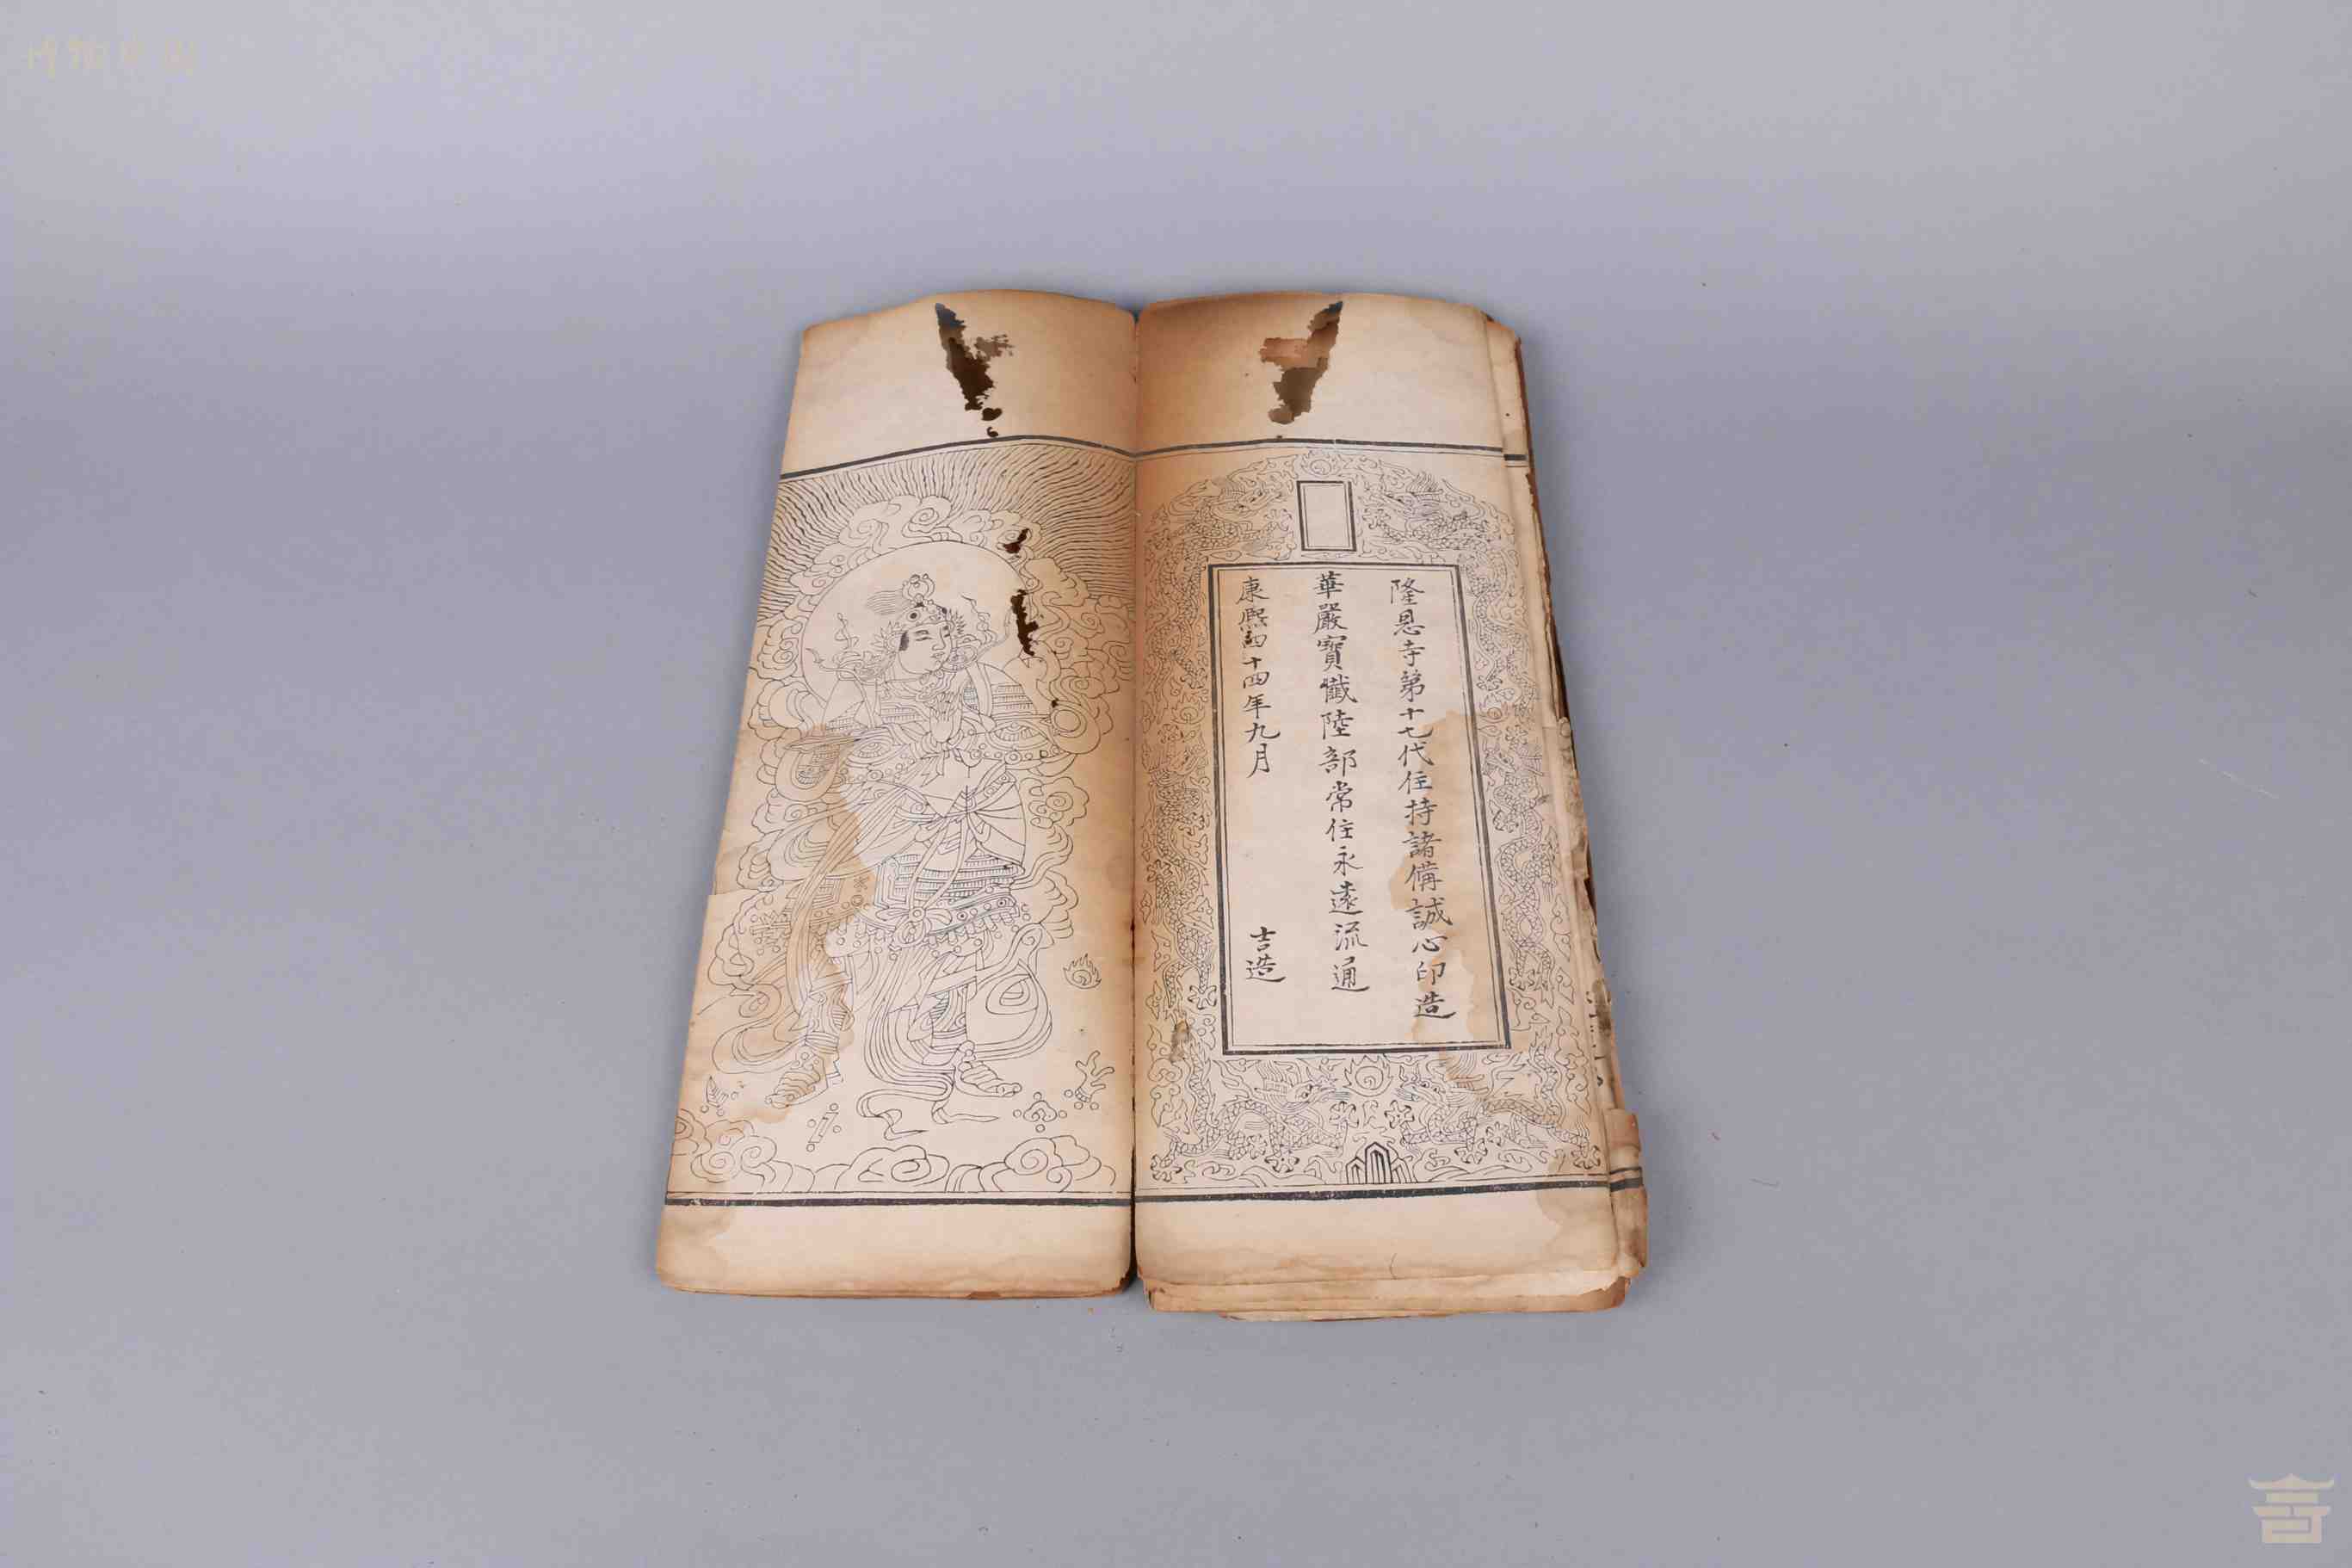 隆恩寺第十七代住持諸備誠心印造
華嚴寶懺陸部常住永遠流通
康熙四十四年九月 吉造